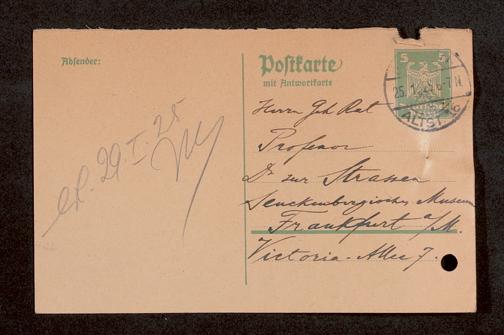 Absender:
Postkarte
mit Antwortkarte
5 5
25.1.25.6-7N.
ALTST. 16
Herrn Geh Rat
Professor
Dr zur Strassen
Senckenbergisches Museum
Frankfurt a/M.
Victoria-Allee 7.
erl. 29.I.25